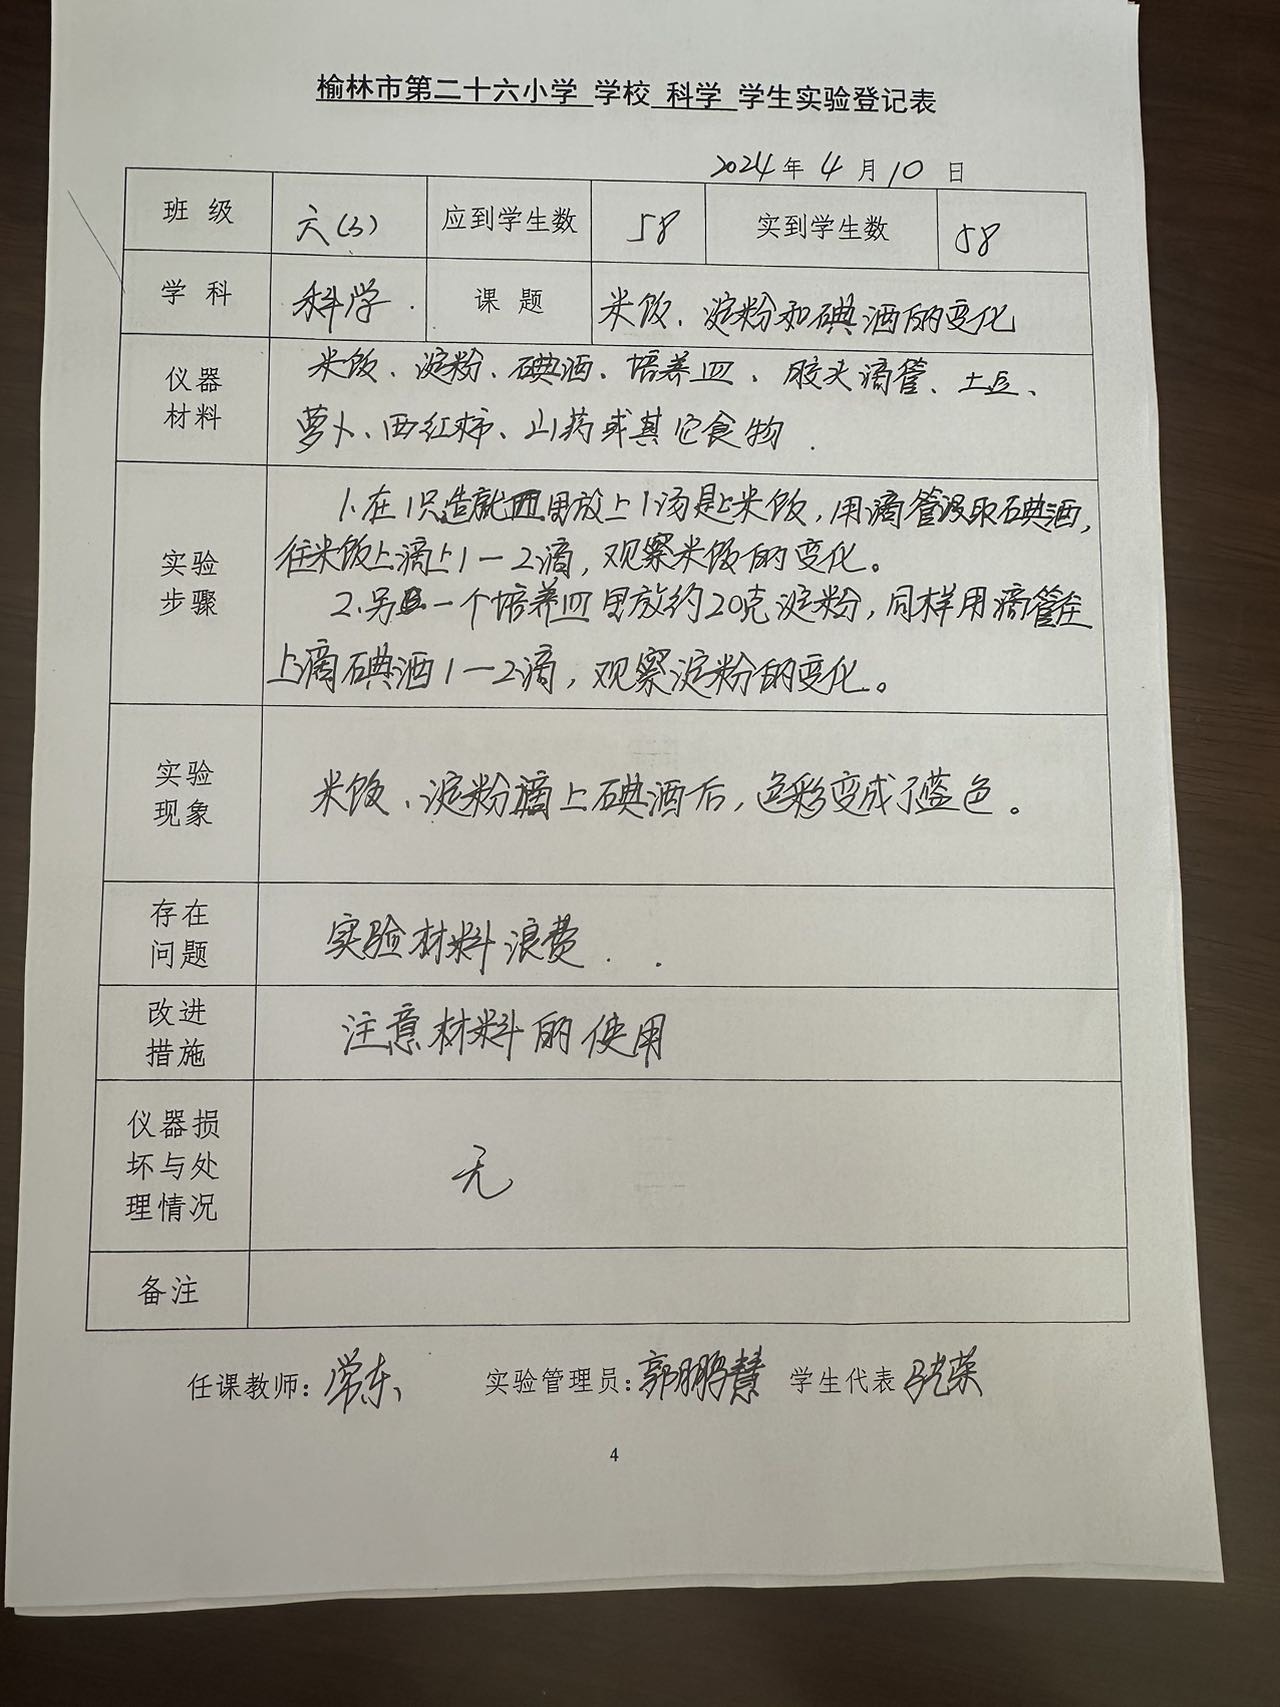 榆林市第二十六小学 学校 科学 学生实验登记表
2024年4月10日
班级 六(3) 应到学生数 58 实到学生数 58
学科 科学 课题 米饭、淀粉和碘酒的变化
仪器材料
米饭、淀粉、碘酒、培养皿、胶头滴管、土豆、
萝卜、西红柿、山药或其它食物.
实验步骤
1.在1只皿里放上1汤匙米饭,用滴管汲取碘酒,
往米饭上滴上1—2滴,观察米饭的变化。
2.另一个培养皿里放约20克淀粉,同样用滴管在
上滴碘酒1—2滴,观察淀粉的变化。
实验现象
米饭、淀粉滴上碘酒后,色彩变成了蓝色。
存在问题
实验材料浪费..
改进措施
注意材料的使用
仪器损坏与处理情况
无
备注
任课教师:常东 实验管理员:郭鹏慧 学生代表
4